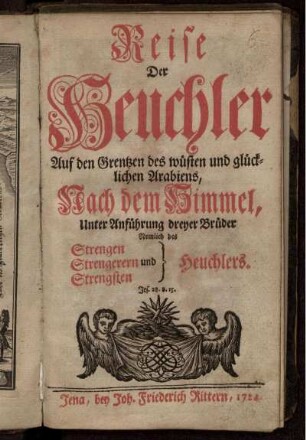 Reise
Der
Heuchler
Auf den Grentzen des wüsten und glück-
lichen Arabiens,
Nach dem Himmel,
Unter Anführung dreyer Brüder
Nemlich des
Strengen
Strengerern und Heuchlers.
Strengsten
Jes. 28. 8. 15.
Jena, bey Joh. Friederich Rittern, 1724.